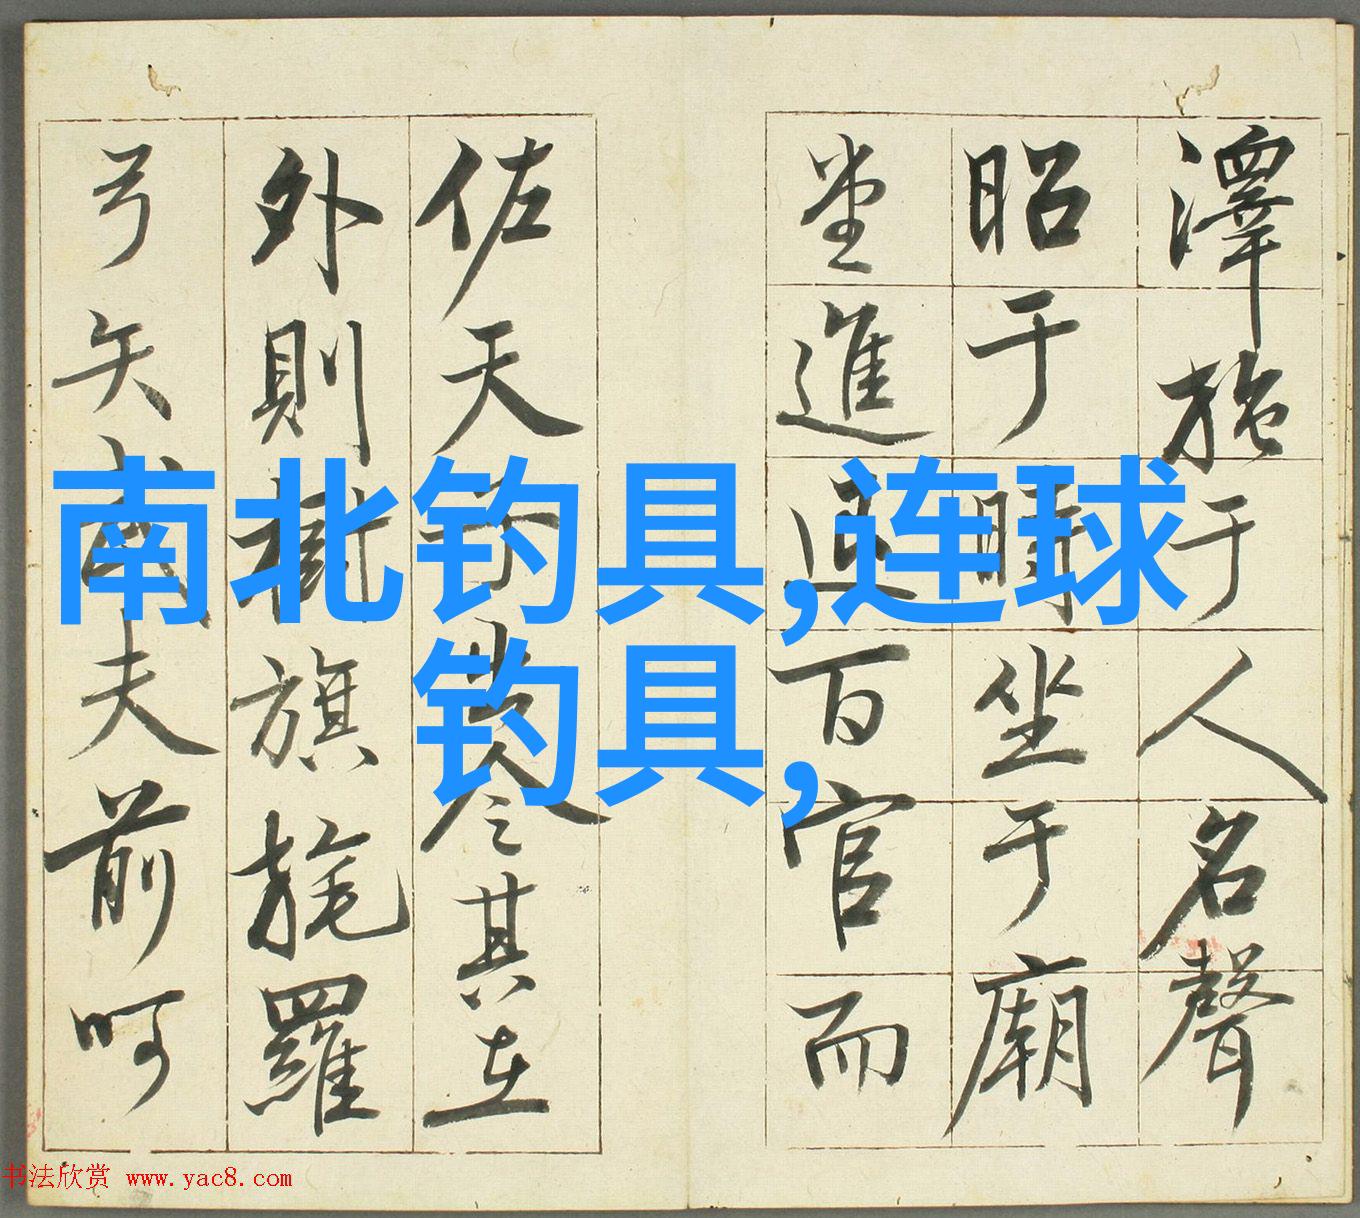 澤施于人名聲
昭于時坐于廟
堂進退百官而
佐天子出令其在
外則樹旗旄羅
弓矢武夫前呵
南北钓具,连球
钓具,
书法欣赏 www.yac8.com